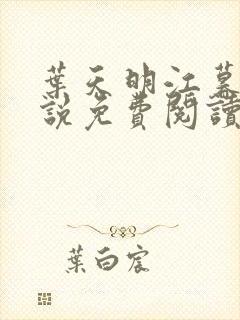 葉天明江暮
說免費閱讀
葉白宸